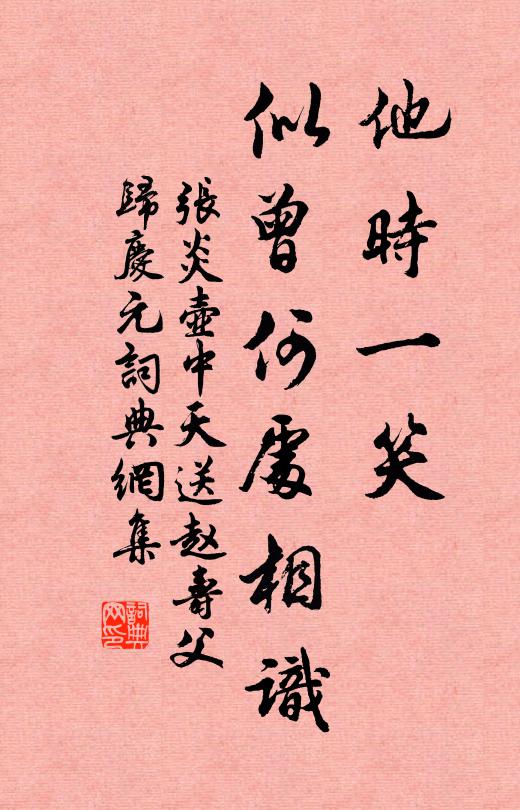 他時一笑
似曾何處相識
張炎壺中天送趙壽父
歸慶元詞典網集
詞典网印